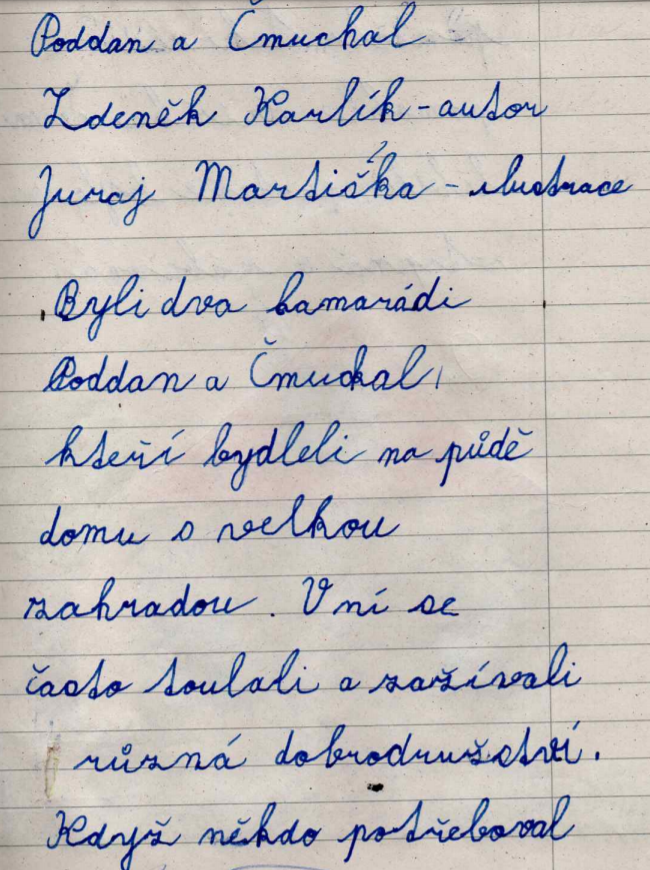 Poddan a Čmuchal
Zdeněk Karlík - autor
Juraj Martiška - ilustrace
Byli dva kamarádi
Poddan a Čmuchal,
kteří bydleli na půdě
domu s velkou
zahradou. V ní se
často toulali a zažívali
různá dobrodružství.
Když někdo potřeboval